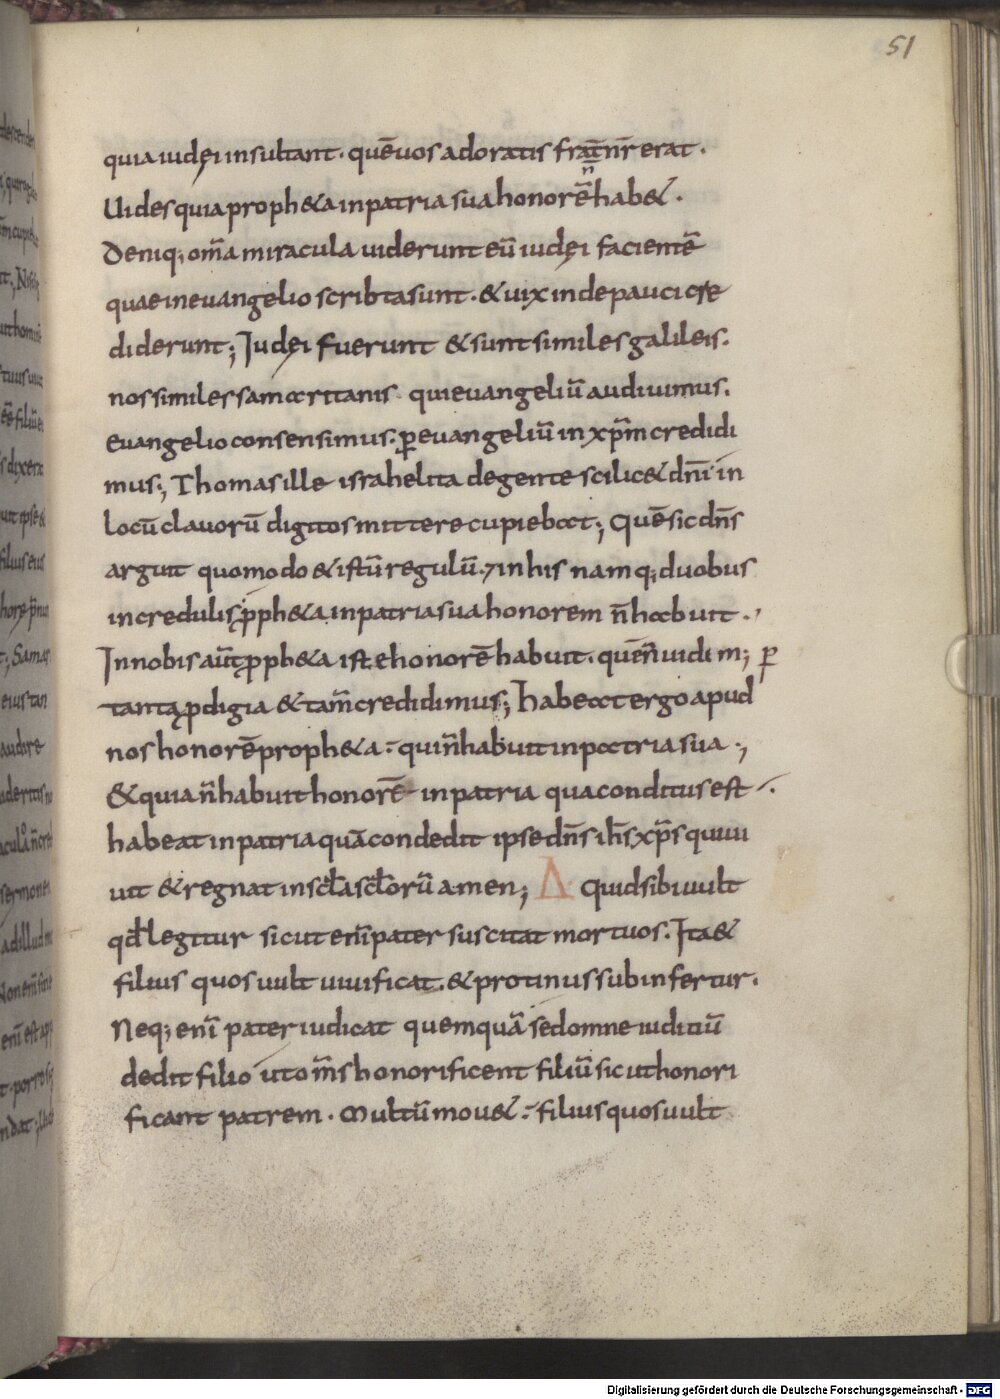 51
quia iudęi insultant · quē uos adoratis frat̄ nr̄ erat ·
Uides quia proph&a in patria sua honorē n̄ hab& ·
Deniq; om̄a miracula uiderunt eū iudęi facientē
quae in euangelio scribta sunt · & uix inde pauci cre
diderunt; Iudęi fuerunt & sunt similes galileis.
nos similes samaritanis qui euangeliū audiuimus.
euangelio consensimus. ꝑ euangeliū in xp̄m credidi
mus; Thomas ille israhelita degente scilic& dn̄i in
locū clauorū digitos mittere cupiebat; Quē sic dn̄s
arguit quomodo & istū regulū. in his namq; duobus
incredulis ꝓph&a in patria sua honorem n̄ habuit ·
In nobis aūt ꝓph&a iste honorē habuit. quē n̄ uidim; ꝑ
tanta ꝓdigia & tam̄ credidimus; habeat ergo apud
nos honorē proph&a · qui n̄ habuit in patria sua ·,
& quia n̄ habuit honorē in patria qua conditus est ·
habeat in patria quā condedit ipse dn̄s ih̄s xp̄s qui ui
uit & regnat in scl̄a scl̄orū amen; Δ Quid sibi uult
qd̄ legitur sicut eni͞ pater suscitat mortuos. Ita &
filius quos uult uiuificat. & protinus subinfertur.
Neq; eni͞ pater iudicat quemquā sed omne iuditiū
dedit filio ut om̄s honorificent filiū sicut honori
ficant patrem · Multū mou& · filius quos uult
Digitalisierung gefördert durch die Deutsche Forschungsgemeinschaft - DFG